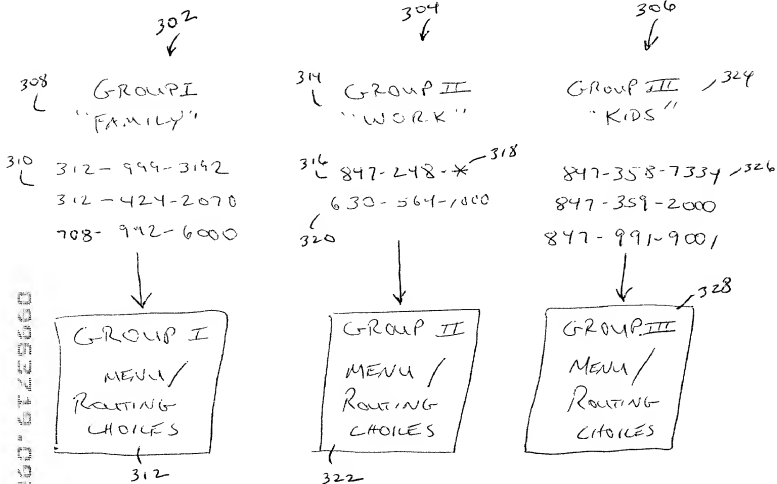 302
304
306
308
GROUP I
"FAMILY"
310
312-999-3192
312-424-2070
708-992-6000
GROUP I
MENU/
ROUTING
CHOICES
312
314
GROUP II
"WORK"
316
847-248-*
318
630-564-1000
320
GROUP II
MENU/
ROUTING
CHOICES
322
GROUP III
324
"KIDS"
847-358-7334
326
847-359-2000
847-991-9001
328
GROUP III
MENU/
ROUTING
CHOICES